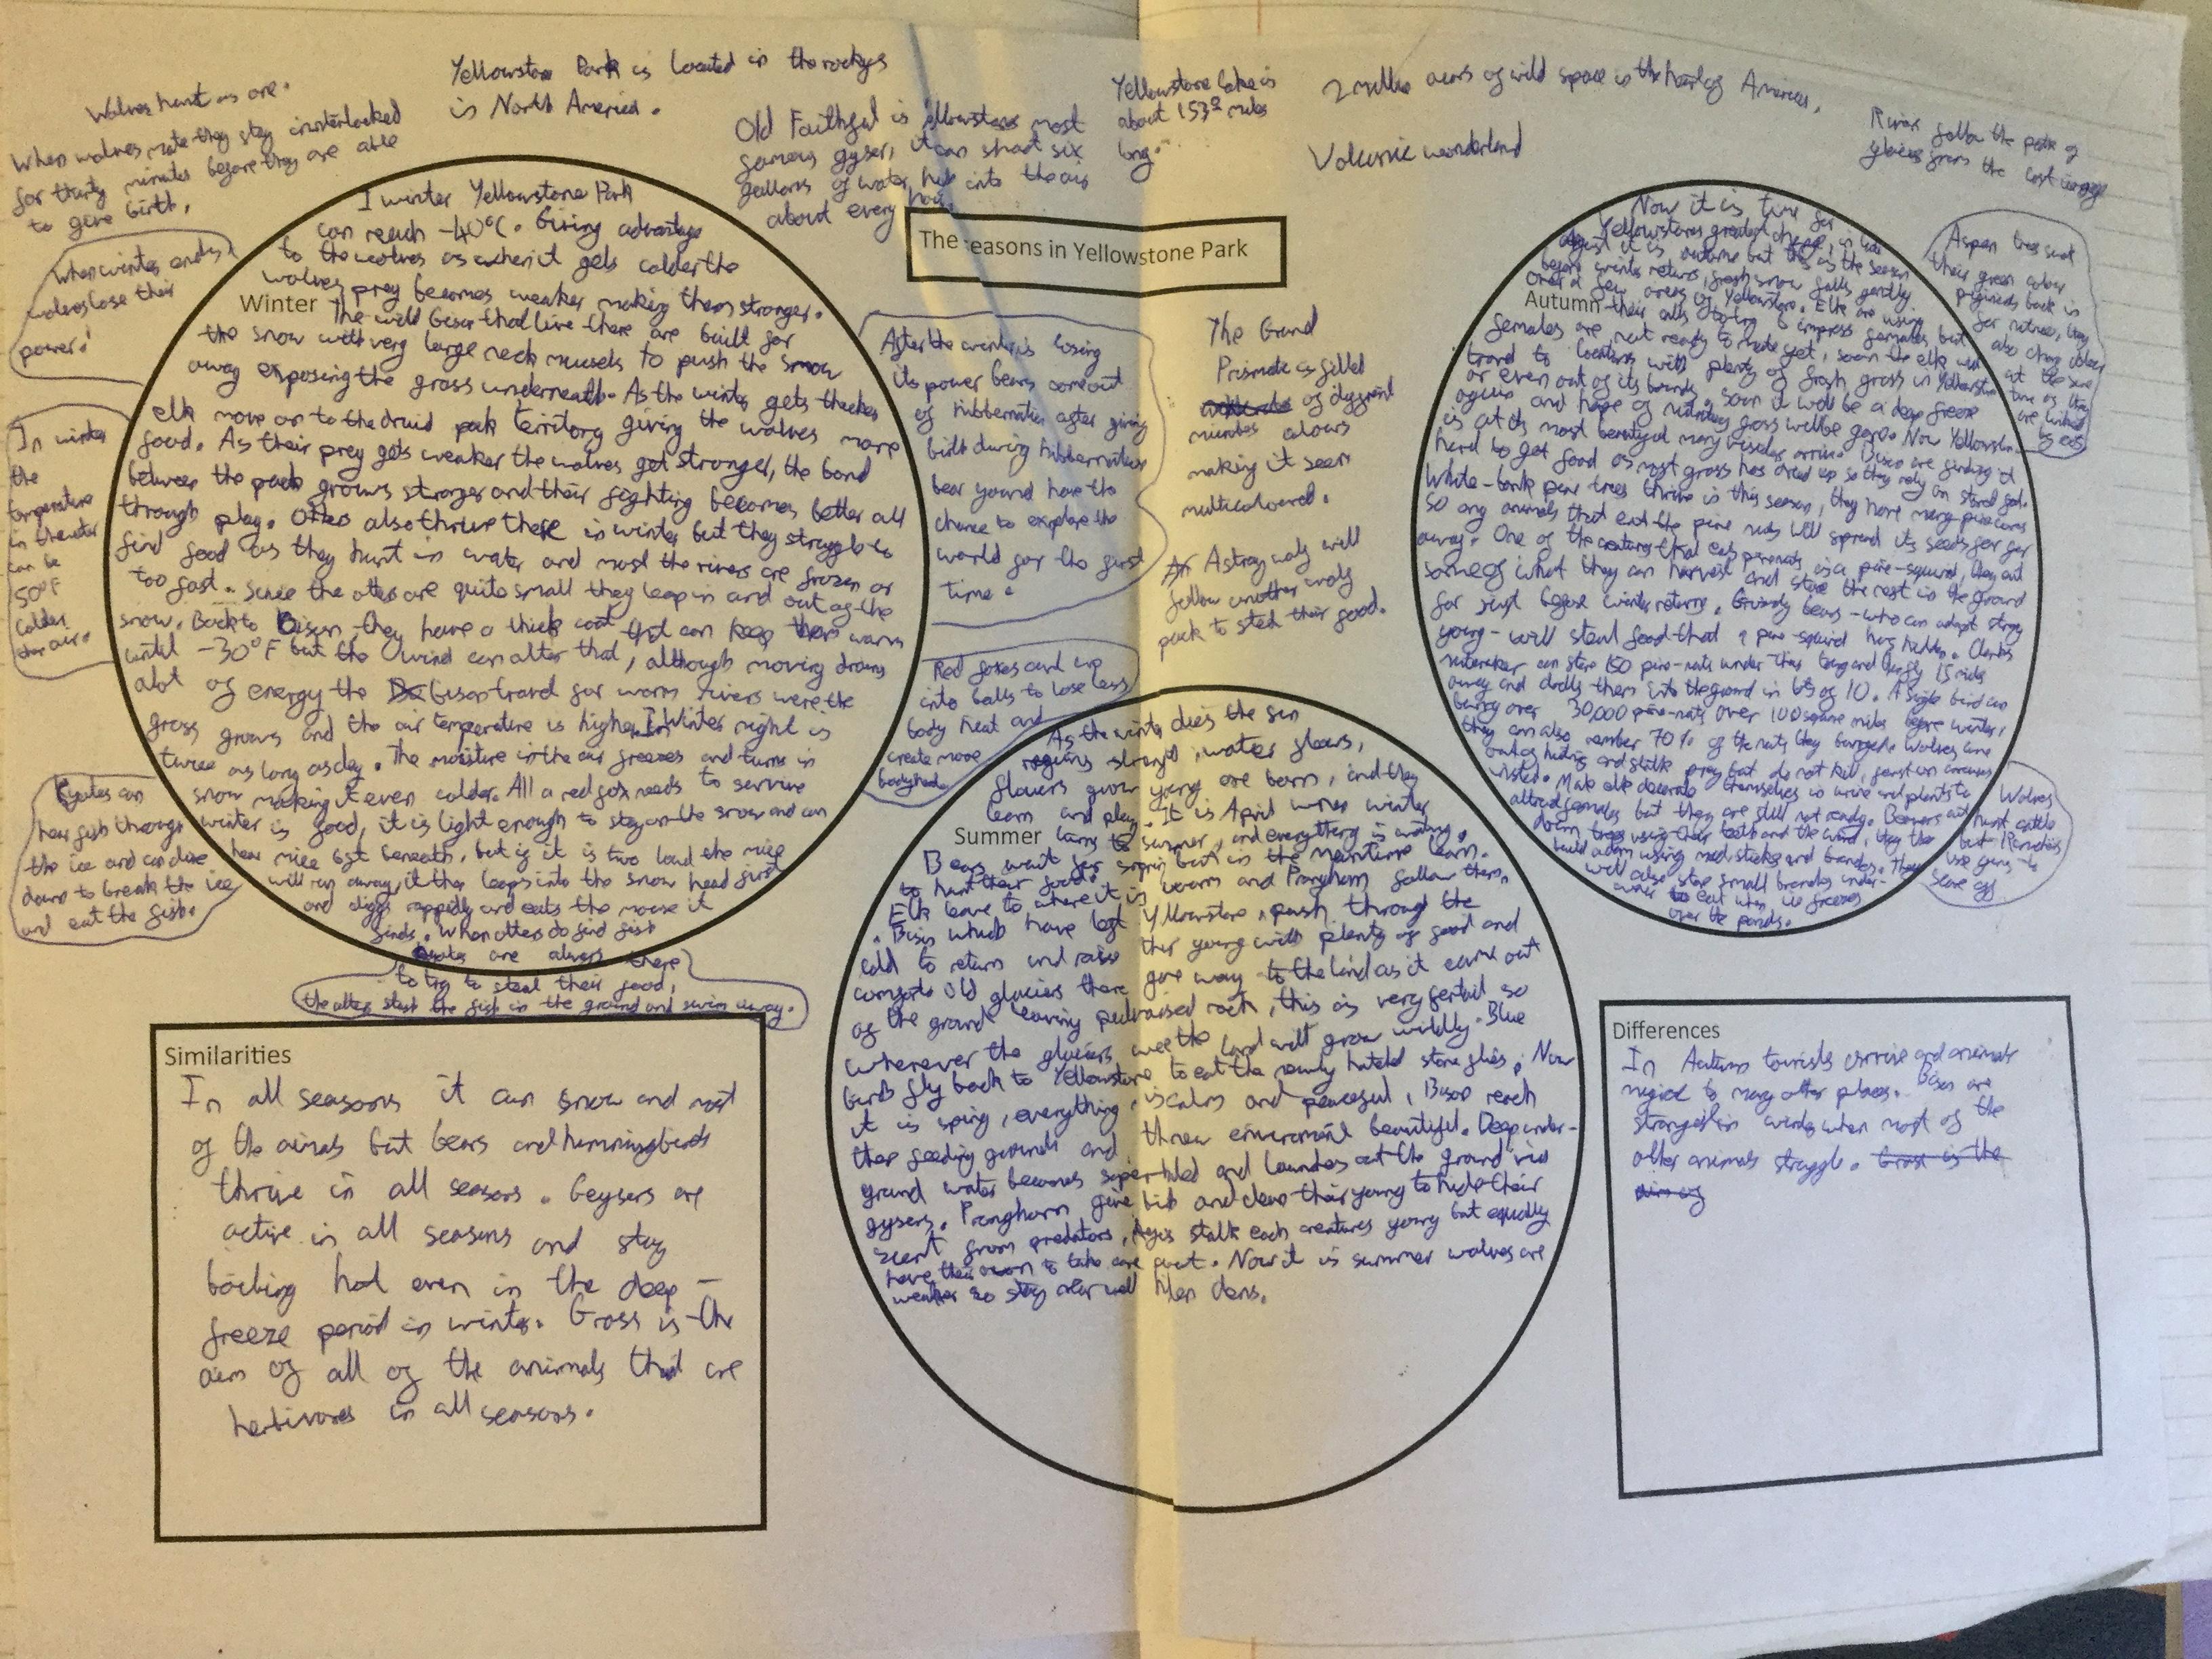 Yellowstone Park is located in the rockys
in North America.
Wolves hunt as one.
When wolves mate they stay interlocked
for thirty minutes before they are able
to give birth.
Old Faithful is yellowstones most
famous gyser, it can shoot six
gallons of water into the air
about every
Yellowstone lake is
about miles
long.
2 of wild space in the heart of America.
Volcanic wonderland
follow the path of
from the
The easons in Yellowstone Park
When winter ends
wolves lose their
power!
In winter
the
temperature
in the water
can be
50°F
colder
than air.
Kyotes can
hear fish through
the ice and can dive
down to break the ice
and eat the fish.
Winter
I winter Yellowstone Park
can reach -40°C. Giving advantage
to the wolves as when it gets colder the
wolves prey becomes weaker making them stronger.
The wild bison that live there are built for
the snow with very large neck mussels to push the snow
away exposing the grass underneath. As the winter gets thicker
elk move on to the druid pack territory giving the wolves more
food. As their prey gets weaker the wolves get stronger, the bond
between the pack grows stronger and their fighting becomes better all
through play. Otters also thrive there in winter but they struggle to
find food as they hunt in water and most the rivers are frozen or
too fast. Since the otters are quite small they leap in and out of the
snow. Back to Bison, they have a thick coat that can keep them warm
until -30°F but the wind can alter that, although moving drains
alot of energy the bison travel for warm rivers were the
grass grows and the air temperature is higher. In Winter night is
twice as long as day. The moisture in the air freezes and turns in
snow making it even colder. All a red fox needs to survive
winter is food, it is light enough to stay on the snow and can
hear mice 6ft beneath, but if it is two loud the mice
will run away, it then leaps into the snow head first
and diggs rappidly and eats the mouse it
finds. When otters do find fish
are always there
to try to steal their food,
the otter stash the fish in the ground and swim away.
After the winter is losing
its power bears come out
of hibbernation after giving
birth during hibbernation
bear yound have the
chance to explore the
world for the first
time.
Red foxes curl up
into balls to lose less
body heat and
create more
bodyheat.
The Grand
Prismatic is filled
of diggrent
microbes colours
making it seem
multicoloured.
A stray wolf will
follow another wolf
pack to steal their food.
Autumn
Now it is time for
Yellowstones greatest change, in late
August it is autumn but this is the season
before winter returns, fresh snow falls gently
over a few areas of Yellowstone. Elk are using
their calls to try to impress females but
females are not ready to mate yet, soon the elk will
travel to locations with plenty of fresh grass in Yellowstone
or even out of its bounds. Soon it will be a deep freeze
again and hope of grass will be gone. Now Yellowstone
is at its most beautiful many arrive. Bison are finding it
hard to get food as most grass has dried up so they rely on stored
White-bark pine trees thrive in this season, they have many pine cones
so any animals that eat the pine nuts will spread its seeds far far
away. One of the creatures that eats pinenuts is a pine-squirrel, they eat
some of what they can harvest and store the rest in the ground
for just before winter returns. Grizzly bears - who can adopt stray
young - will steal food that a pine-squirrel has hidden. Clarks
nutcracker can store 150 pine-nuts under their tung and they fly 15 miles
away and drills them into the ground in lots of 10. A single bird can
burry over 30,000 pine-nuts over 100 square miles before winter,
they can also rember 70% of the nuts they burryed. Wolves come
out of hiding and stalk prey but do not kill,
Male elk decorate themselves in urine and plants to
attract females but they are still not ready. Beavers cut
down trees using their teeth and the wind, they then
build a dam using mud, sticks and branches. They
will also stop small branches under-
water to eat when ice freezes
over the ponds.
Aspen trees suck
their green colour
back in
for they
also change colour
at the same
time as they
are linked
by
Wolves
hunt cattle
but
use guns to
scare off
Summer
As the winter dies the sun
regains strength, water flows,
flowers grow young are born, and they
learn and play. It is April when winter
turns to summer, and everything is waiting.
Bears wait for spring but in the meantime learn
to hunt their food.
Elk leave to where it is warm and Pronghorn follow them.
Bison which have left Yellowstone, push through the
cold to return and raise ther young with plenty of food and
comfort. Old glaciers there gave way to the land as it carve out
of the ground leaving pulvarised rock, this is very fertail so
wherever the glaciers were the land will grow wildly. Blue
birds fly back to Yellowstone to eat the newly hatched stone flies. Now
it is spring, everything is calm and peaceful, Bison reach
ther feeding grounds and thrów enverment beautiful. Deep under-
ground water becomes super-heated and launches out the ground via
gysers. Pronghorn give birth and clean their young to hide their
scent from predators, stalk each creatures young but equally
have their own to take care of. Now it is summer wolves are
weaker so stay near their dens.
Similarities
In all seasons it can snow and most
of the aimals but bears and hummingbirds
thrive in all seasons. Geysers are
active in all seasons and stay
boiling hot even in the deep-
freeze period in winter. Grass is the
aim of all of the animals that are
herbivores in all seasons.
Differences
In Autumn tourists arrive and animals
migrate to many other places. Bison are
strongest in winter when most of the
other animals struggle. Grass is the
aim of